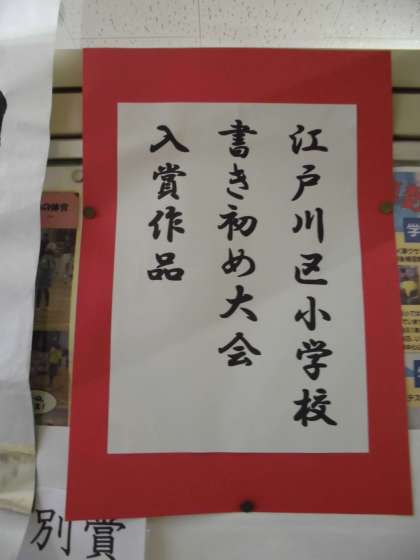 江戸川区小学校
書き初め大会
入賞作品
別賞